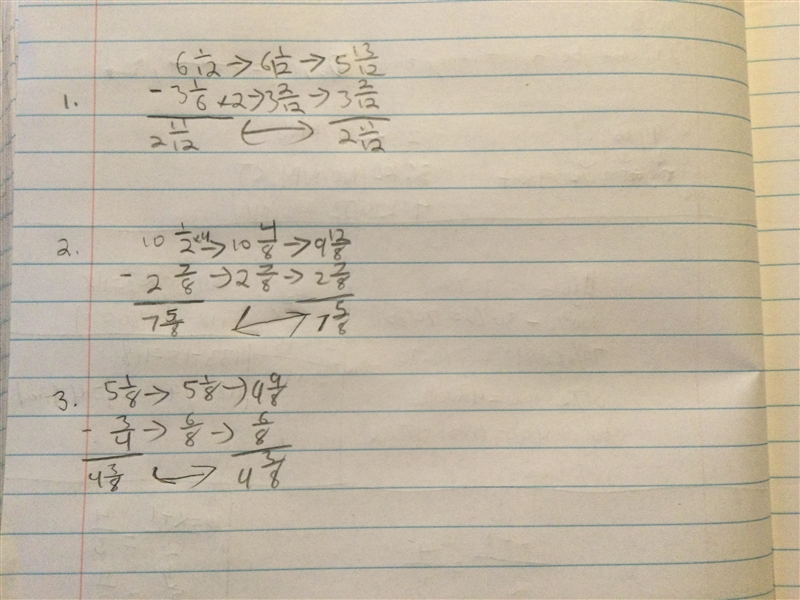 6 1/12 → 6 1/12 → 5 13/12
1. - 3 1/6 ×2 → 3 2/12 → 3 2/12
2 11/12 ↔ 2 11/12
2. 10 1/2 ×4 → 10 4/8 → 9 12/8
- 2 7/8 → 2 7/8 → 2 7/8
7 5/8 ↔ 7 5/8
3. 5 1/8 → 5 1/8 → 4 9/8
- 3/4 → 6/8 → 6/8
4 3/8 ↔ 4 3/8